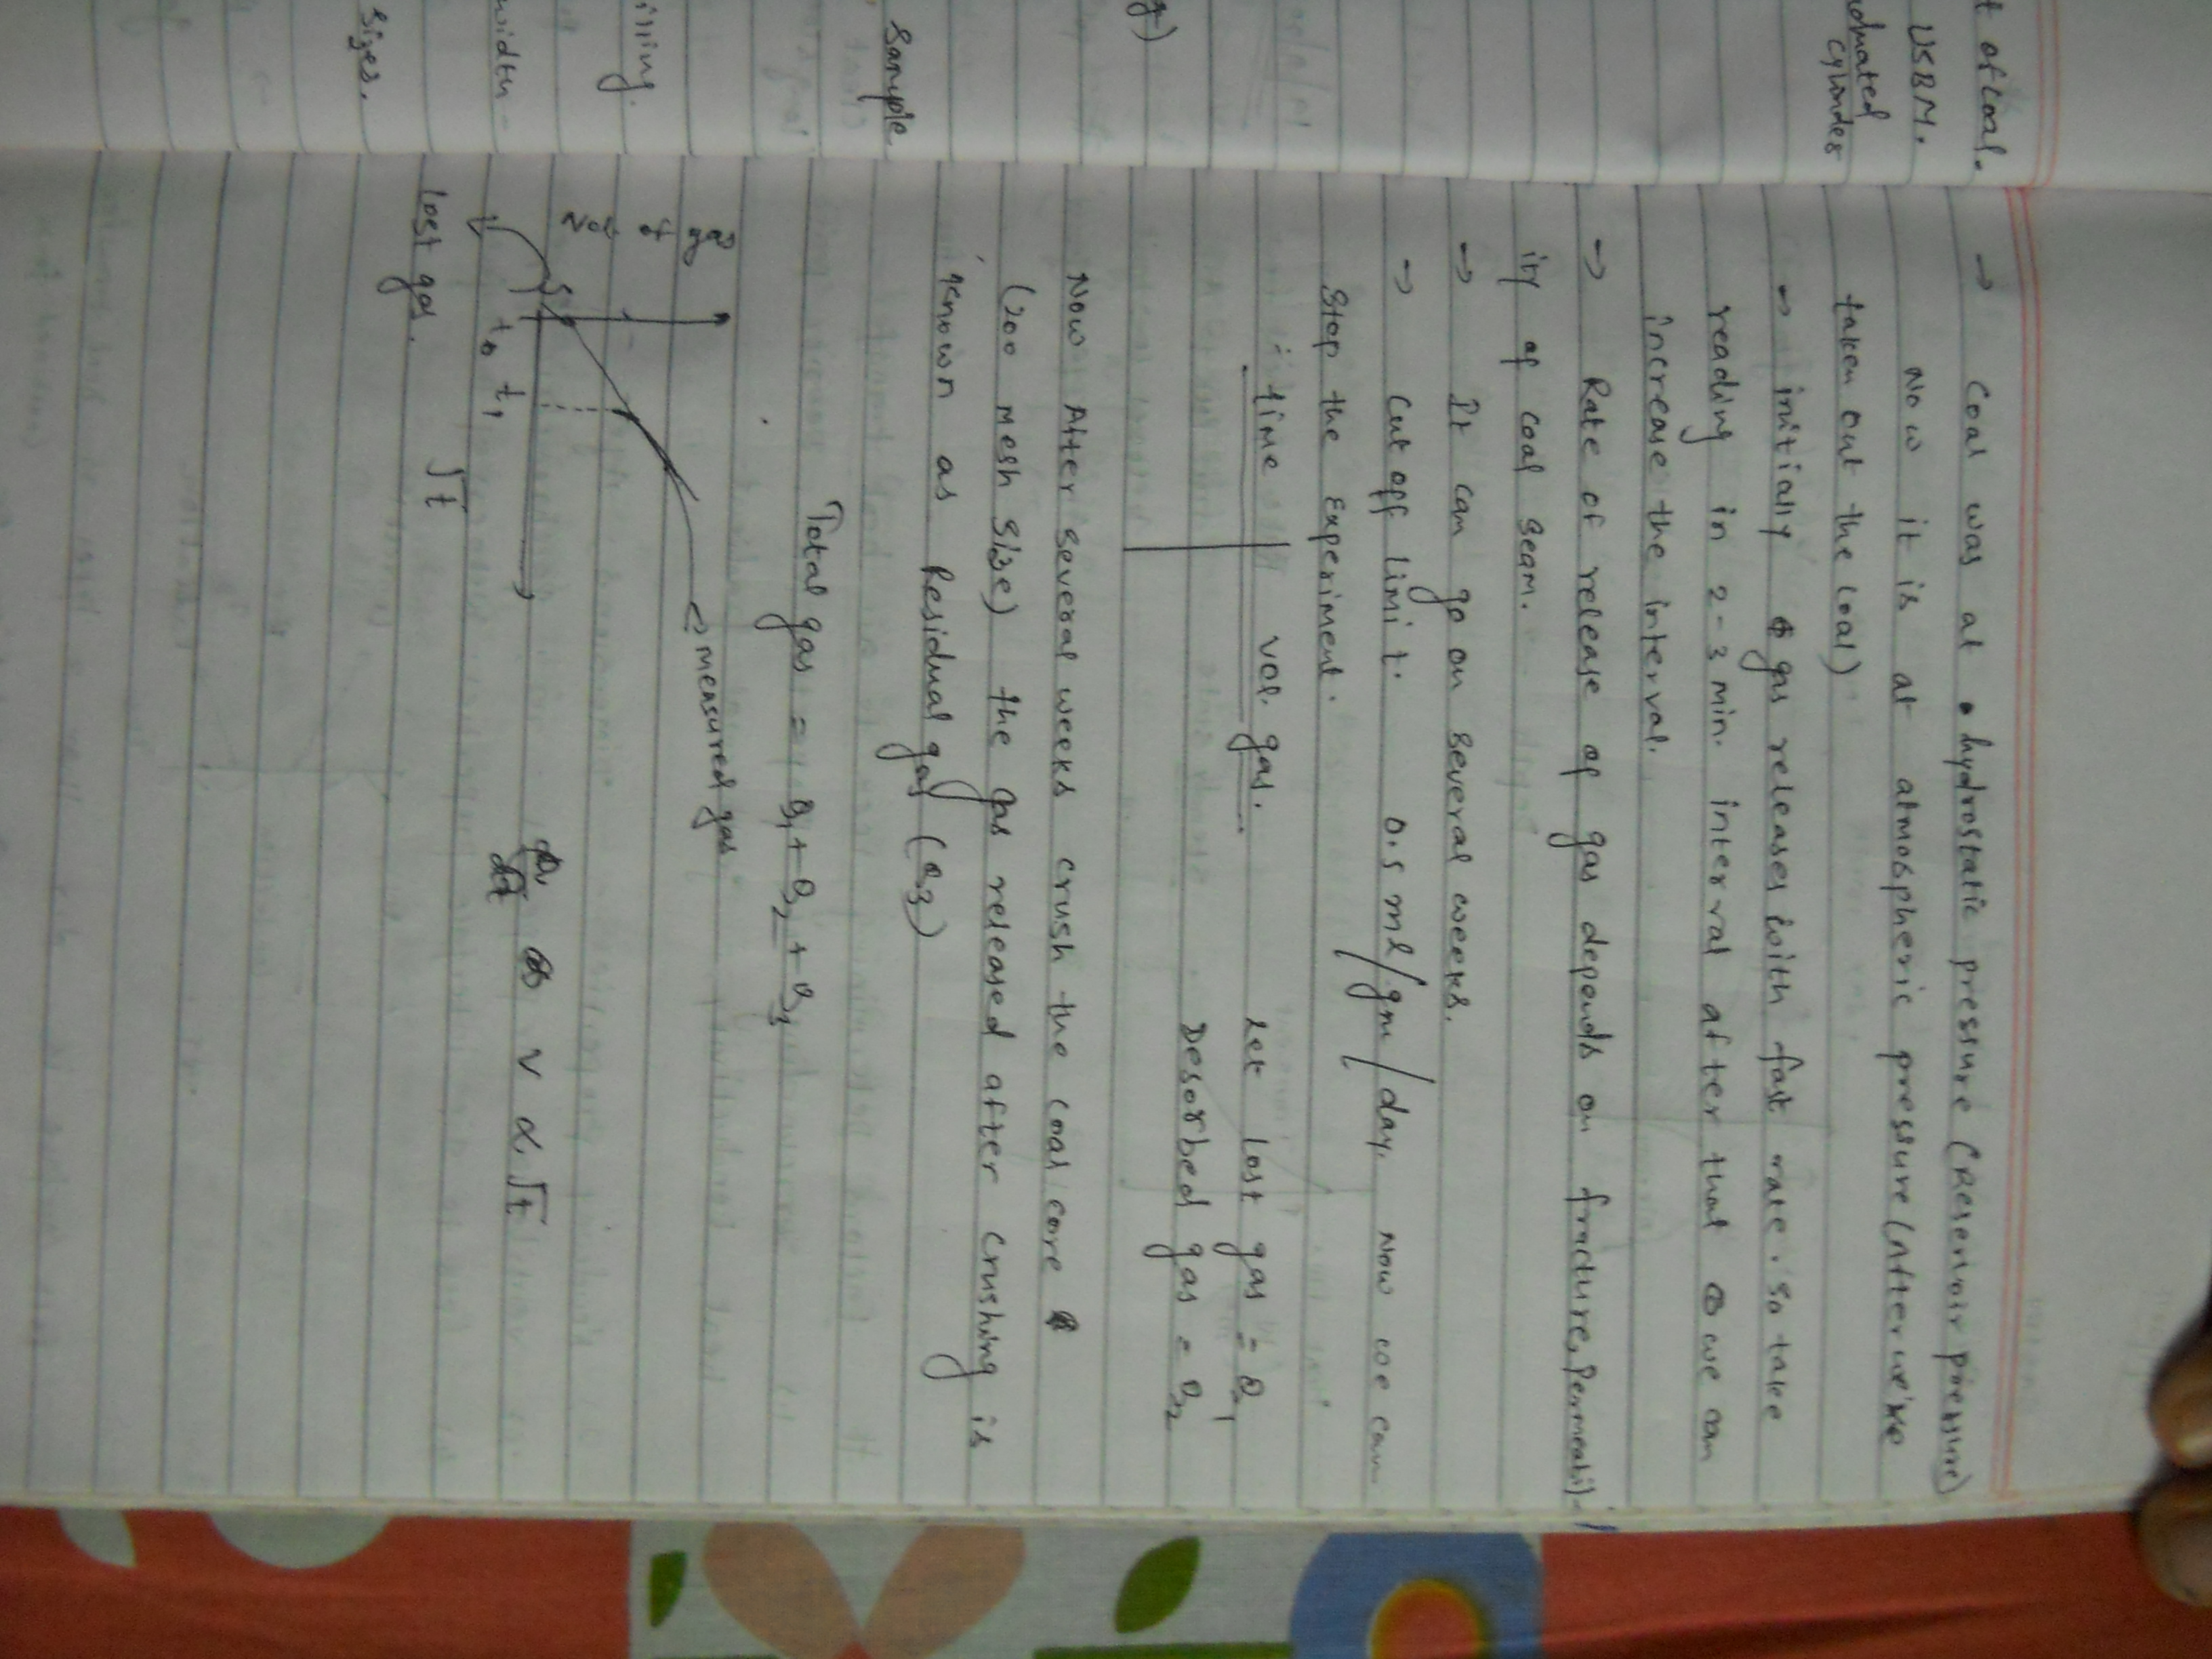 t of coal.
USBM.
cylinder
Sample
illing.
width-
sizes.
→ Coal was at hydrostatic pressure (Reservoir pressure)
Now it is at atmospheric pressure (After we've
taken out the coal)
→ initially gas releases with fast rate. so take
reading in 2-3 min. interval after that we can
increase the interval.
→ Rate of release of gas depends on fracture, Permeabil-
ity of coal seam.
→ It can go on several weeks.
→ Cut off limit. 0.5 ml/gm/day. Now we can
Stop the Experiment.
time vol. gas. Let lost gas = Q1
Desorbed gas = Q2
Now After several weeks crush the coal core
(200 mesh size) the gas released after crushing is
known as Residual gas (Q3)
Total gas = Q1 + Q2 + Q3
← measured gas
t0 t1
√t
lost gas.
V α √t